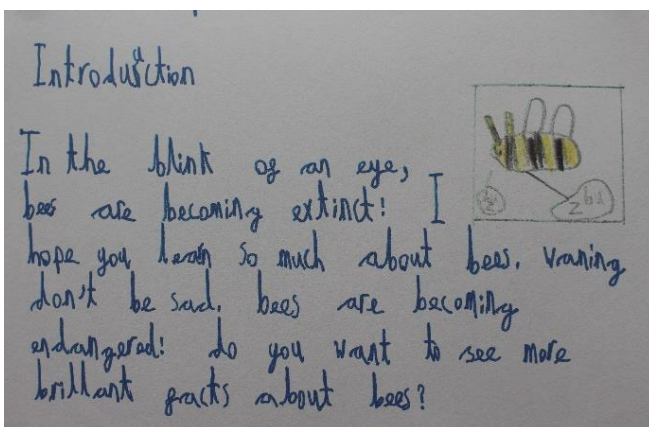 Introduction
In the blink of an eye,
bees are becoming extinct! I
hope you learn so much about bees. Vraning
don't be sad. bees are becoming
endangered! do you want to see more
brillant facts about bees?